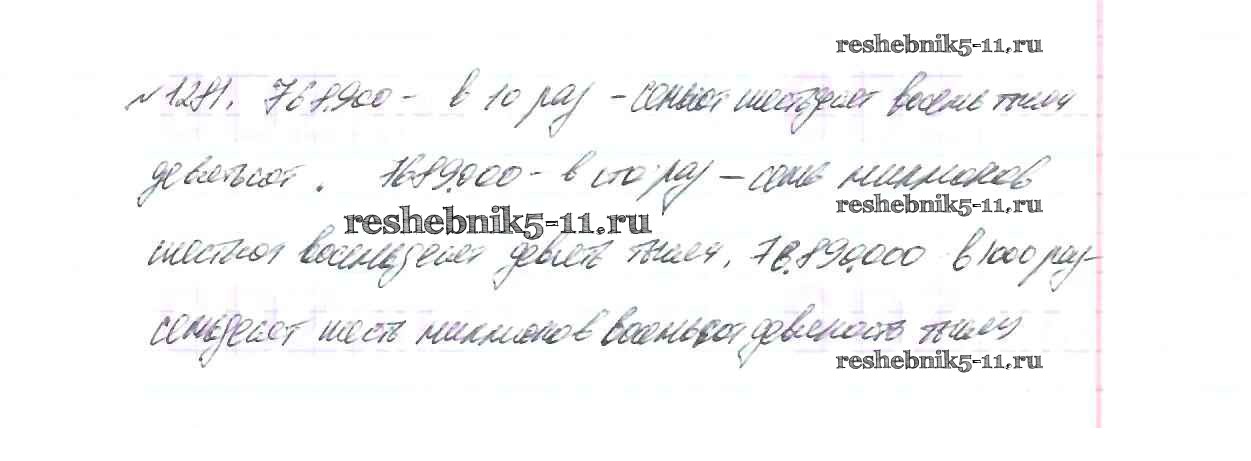 reshebnik5-11.ru
№1281. 768.900 - в 10 раз - семьсот шестьдесят восемь тысяч
девятьсот. 7689.000 - в сто раз - семь миллионов
reshebnik5-11.ru
reshebnik5-11.ru
шестьсот восемьдесят девять тысяч. 76.890.000 в 1000 раз -
семьдесят шесть миллионов восемьсот девяносто тысяч
reshebnik5-11.ru